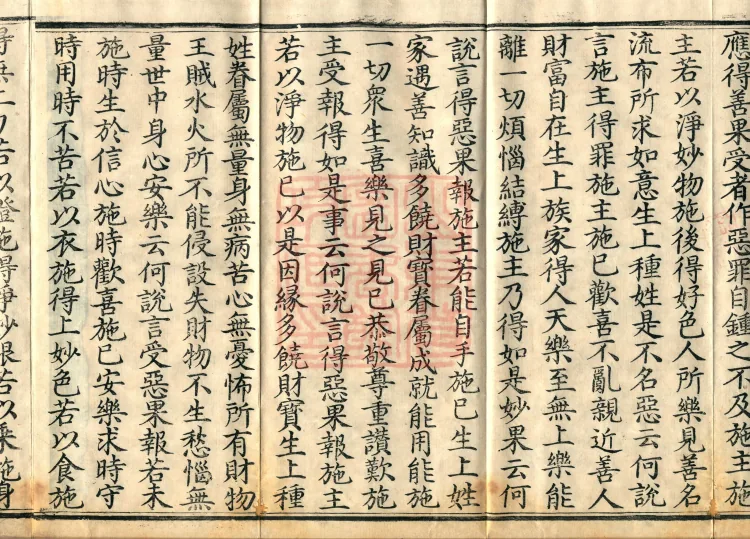 應得善果受者作惡罪自鍾之不及施主施
主若以淨妙物施後得好色人所樂見善名
流布所求如意生上種姓是不名惡云何說
言施主得罪施主施已歡喜不亂親近善人
財富自在生上族家得人天樂至無上樂能
離一切煩惱結縛施主乃得如是妙果云何
說言得惡果報施主若能自手施已生上姓
家遇善知識多饒財寶眷屬成就能用能施
一切眾生喜樂見之見已恭敬尊重讚歎施
主受報得如是事云何說言得惡果報施主
若以淨物施已以是因緣多饒財寶生上種
姓眷屬無量身無病苦心無憂怖所有財物
王賊水火所不能侵設失財物不生愁惱無
量世中身心安樂云何說言受惡果報若未
施時生於信心施時歡喜施已安樂求時守
時用時不苦若以衣施得上妙色若以食施
得無上力若以燈施得淨妙眼若以乘施身